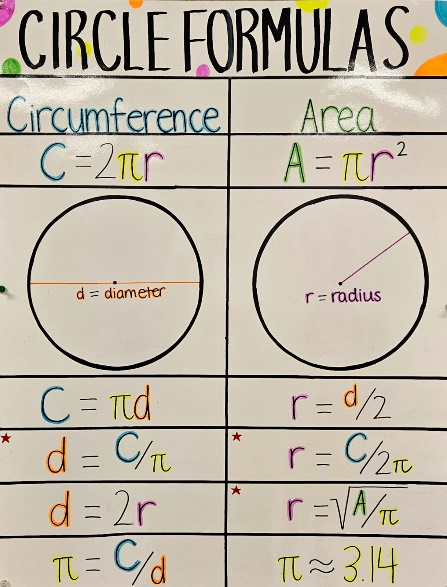 CIRCLE FORMULAS
Circumference Area
C = 2πr A = πr²
d = diameter r = radius
C = πd r = d/2
★ d = C/π ★ r = C/2π
d = 2r ★ r = √A/π
π = C/d π ≈ 3.14